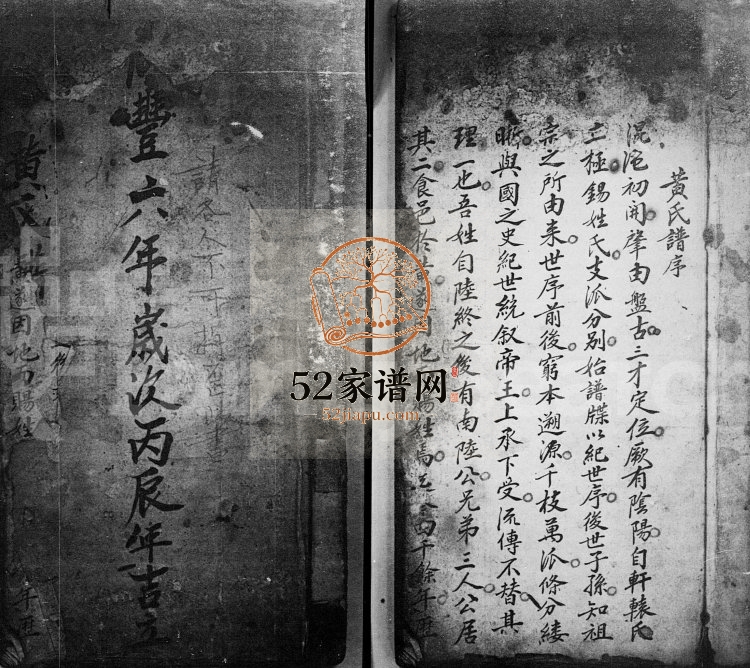 黃氏譜序
混沌初開肇由盤古三才定位厥有陰陽自軒轅氏
立極錫姓氏支派分別始譜牒以紀世序後世子孫知祖
宗之所由来世序前後窮本遡源千枝萬派條分縷
晰與國之史紀世統叙帝王上承下受流傳不替其
理一也吾姓自陸終之後有南陸公兄弟三人公居
其二食邑於 地 姓焉 四千餘年歷
豐六年歲次丙辰年吉立
請各人不可
黃氏
遂因地乃賜姓
年歷
52家谱网
52jiapu.com